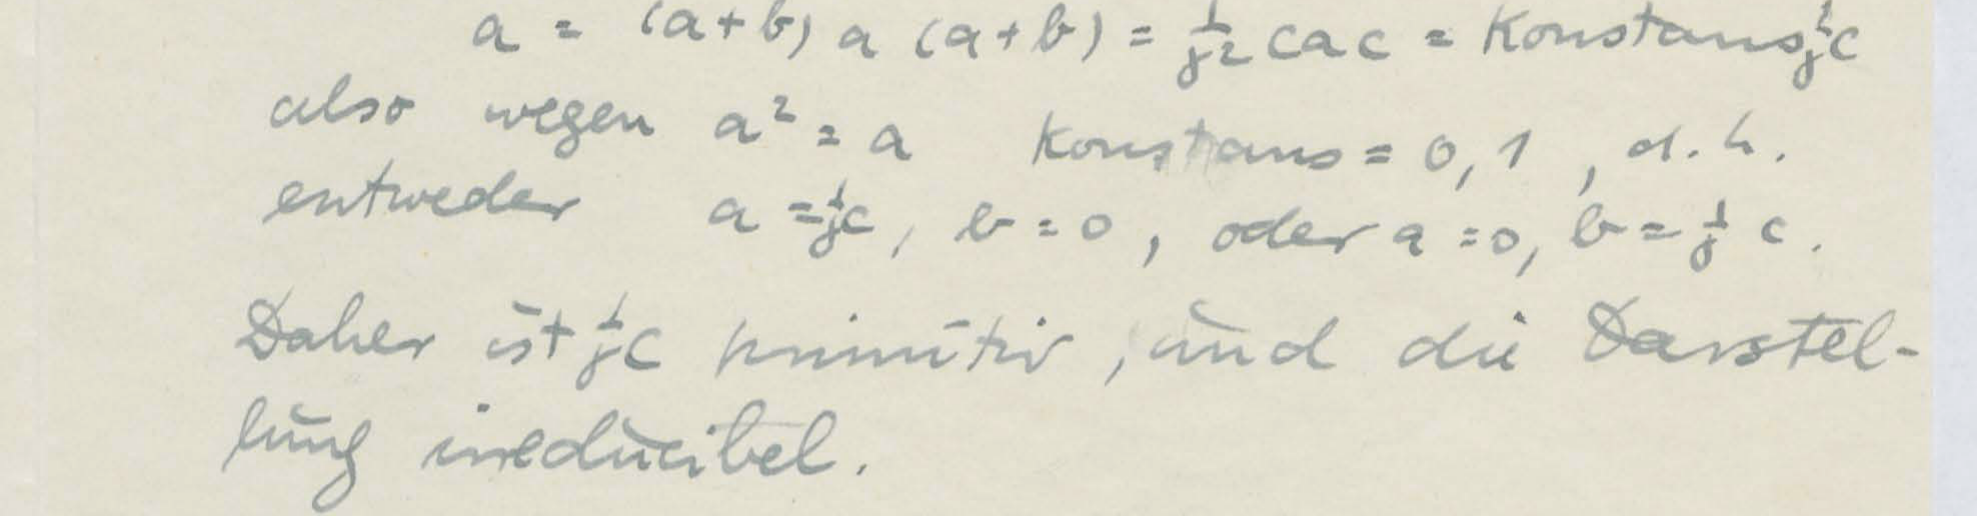 a = (a+b) a (a+b) = 1/γ² c a c = Konstans 1/γ c
also wegen a² = a Konstans = 0, 1 , d. h.
entweder a = 1/γ c, b = 0 , oder a = 0, b = 1/γ c .
Daher ist 1/γ c primitiv , und die Darstel-
lung irreducibel .